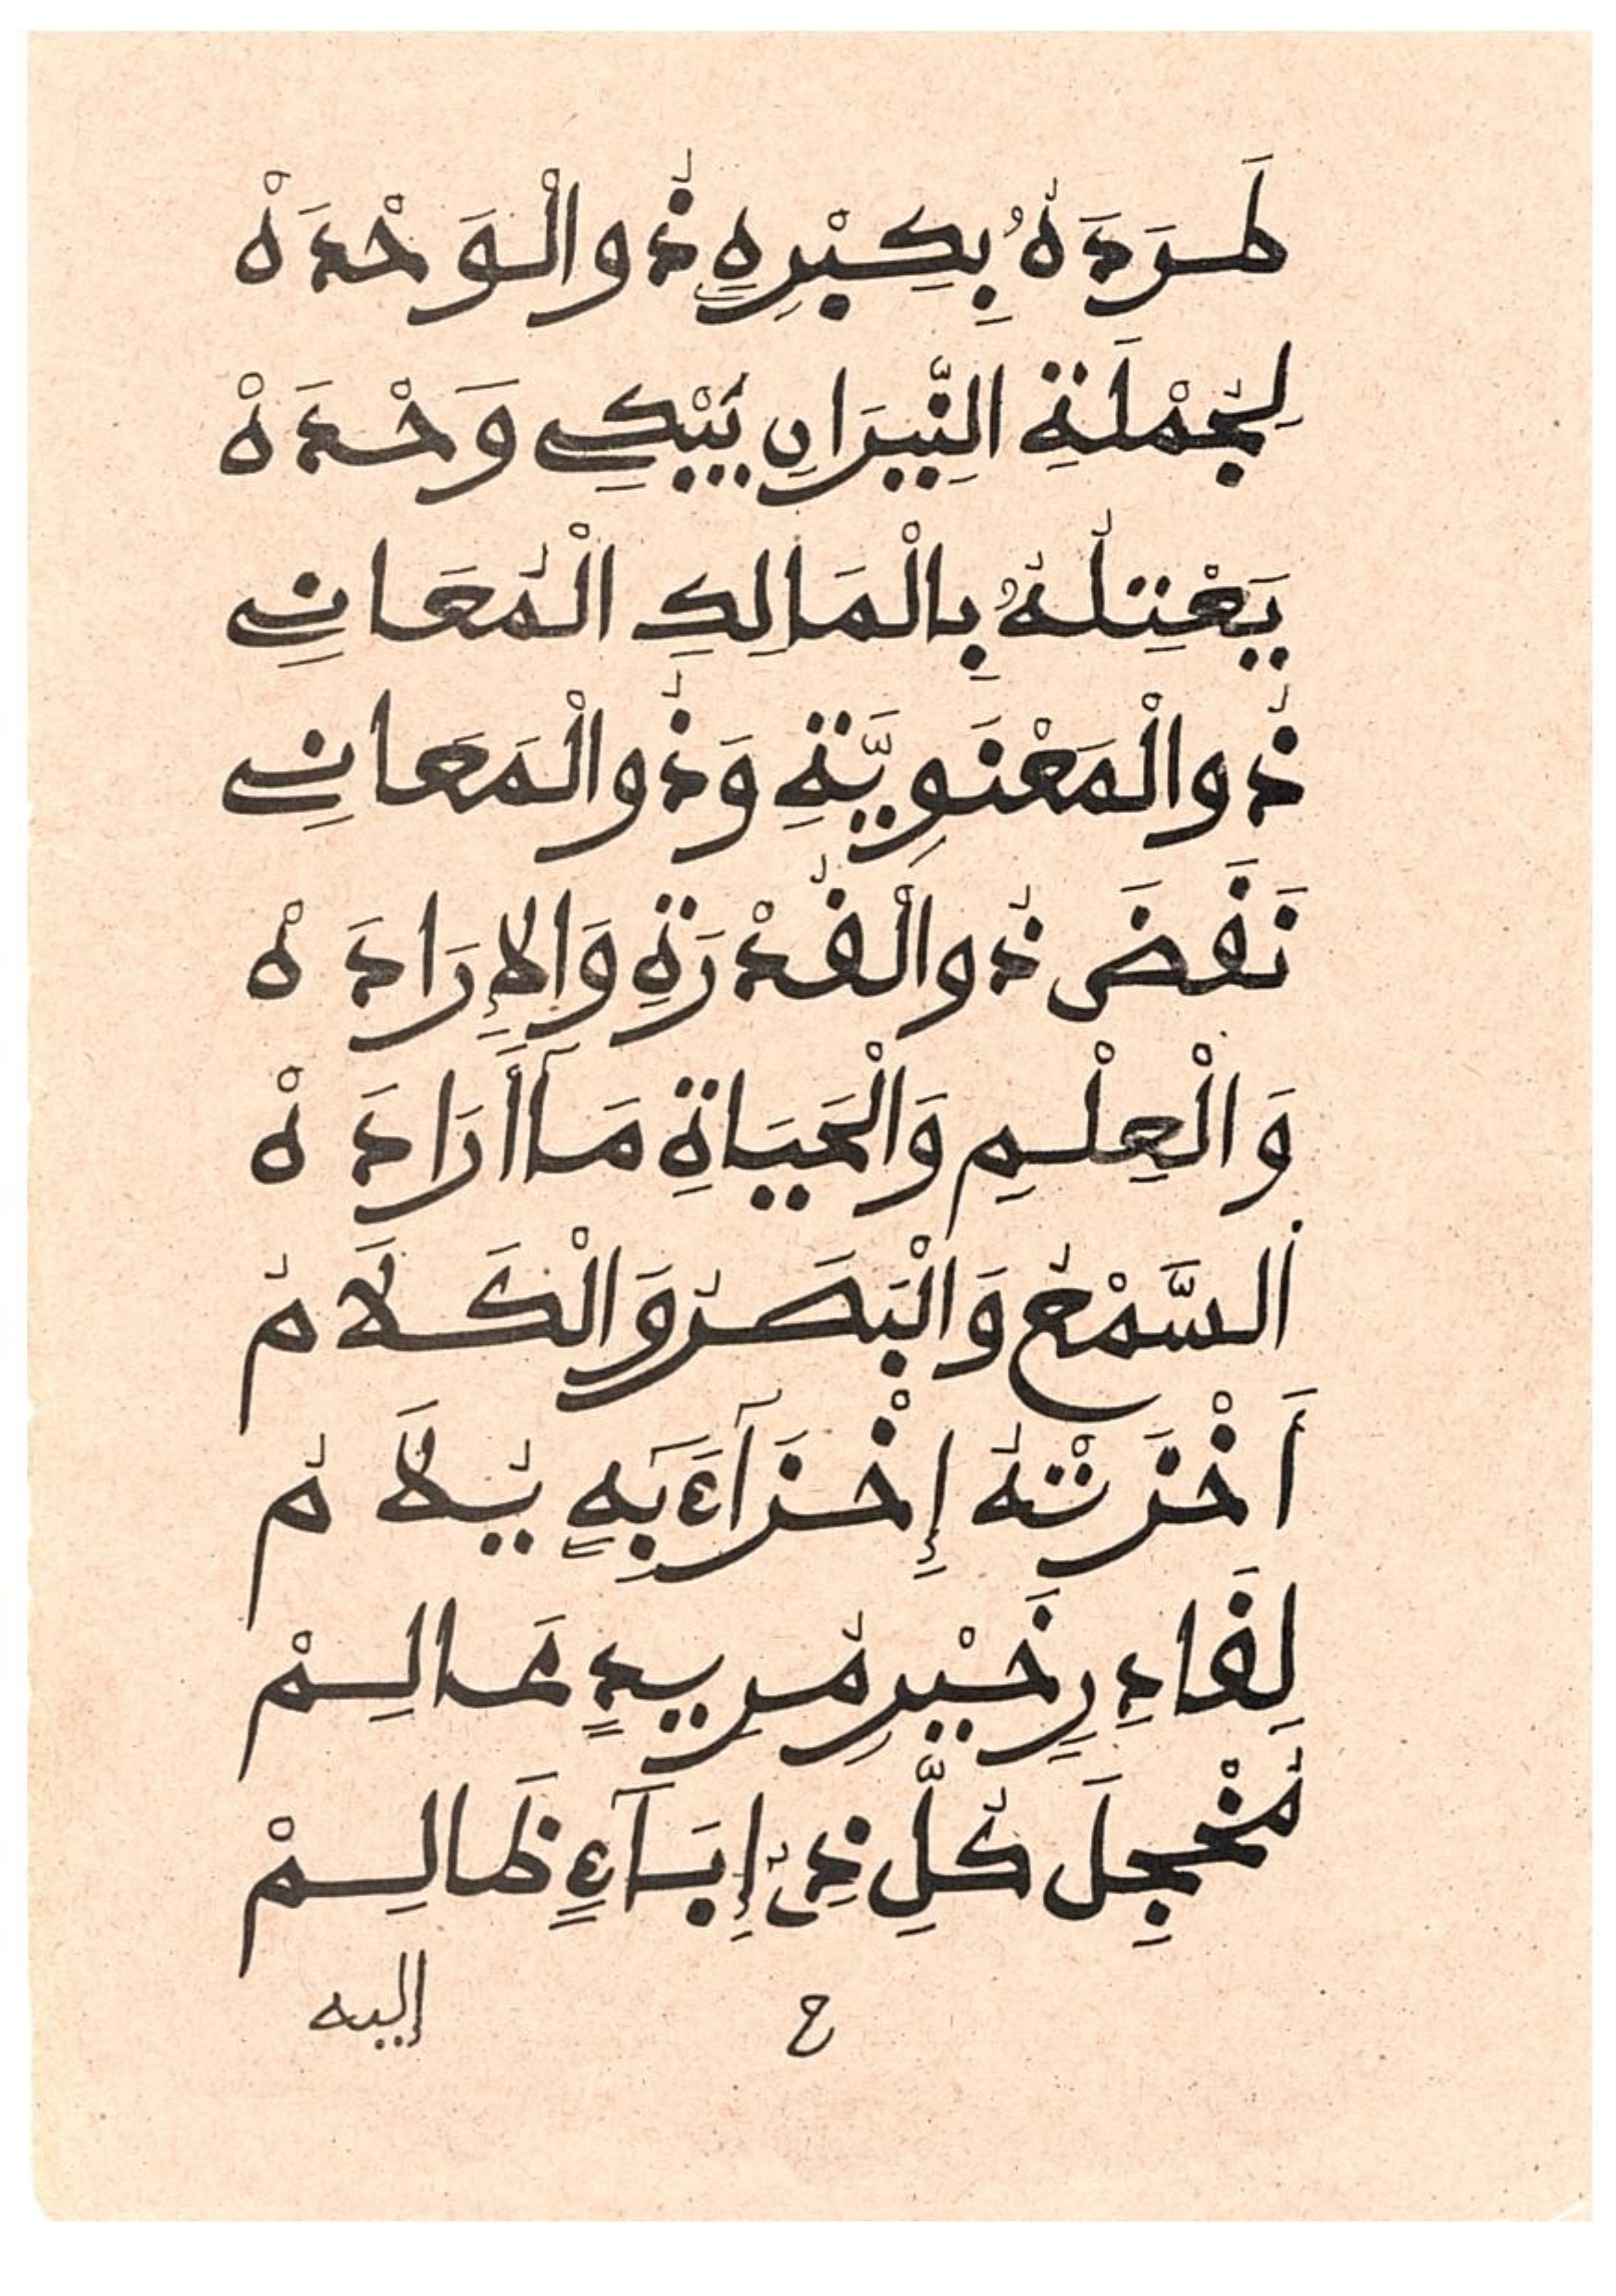 طَرَدَهُ بِكِبْرِهِ ذُو الْوَحْدَهْ
لِجُمْلَةِ النِّيرَانِ يَبْكِي وَحْدَهْ
يَعْتِلُهُ بِالْمَالِكِ الْمُعَانِي
ذُو الْمَعْنَوِيَّةِ وَذُو الْمَعَانِي
نَقَضَ ذُو الْقُدْرَةِ وَالْإِرَادَهْ
وَالْعِلْمِ وَالْحَيَاةِ مَآ أَرَادَهْ
اَلسَّمْعُ وَالْبَصَرُ وَالْكَلَامُ
أَخْزَتْهُ إِخْزَآءً بِهِ يُلَامُ
لِقَادِرٍ خَيْرِ مُرِيدٍ عَالِمْ
مُخْجِلِ كُلِّ ذِي إِبَآءٍ ظَالِمْ
ح
إليه